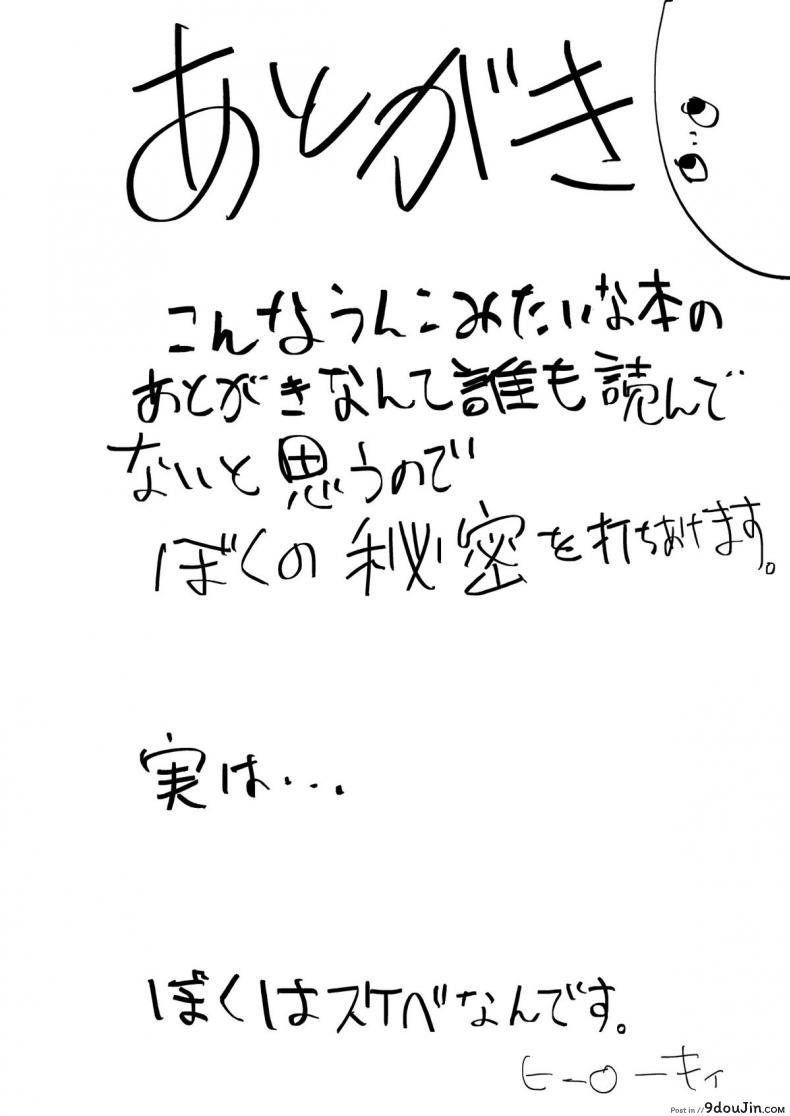 あとがき
こんなうんこみたいな本の
あとがきなんて誰も読んで
ないと思うので
ぼくの秘密を打ちあけます。
実は...
ぼくはスケベなんです。
ヒーローキィ
Post in // 9douJin.com